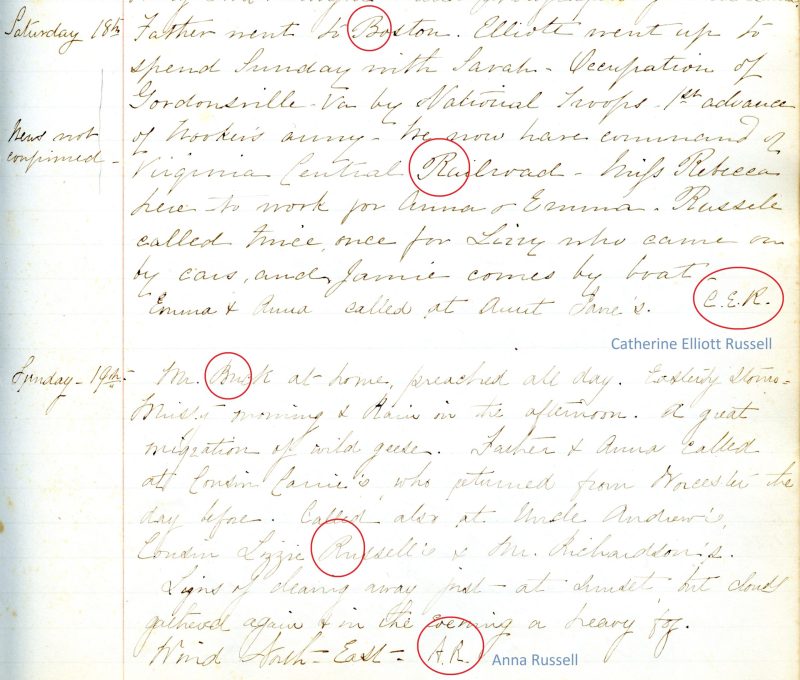 Saturday 18th Father went to Boston. Elliott went up to
spend Sunday with Sarah - Occupation of
Gordonsville - Va by National Troops - 1st advance
News not of Hooker's army - We now have command of
confirmed - Virginia Central Railroad - Miss Rebecca
here - to work for Anna & Emma. Russell
called twice, once for Lizzy who came on
by cars, and Jamie comes by boat
Emma & Anna called at Aunt Jane's. C.E.R.
Catherine Elliott Russell
Sunday - 19th - Mr. Buck at home, preached all day. Easterly Storm -
Mist morning & Rain in the afternoon. A great
migration of wild geese. Father & Anna called
at Cousin Carrie's, who returned from Worcester the
day before. Called also at Uncle Andrew's,
Cousin Lizzie Russell's & Mr. Richardson's.
Signs of clearing away just at sunset, but clouds
gathered again & in the evening a heavy fog.
Wind North - East - A.R. Anna Russell